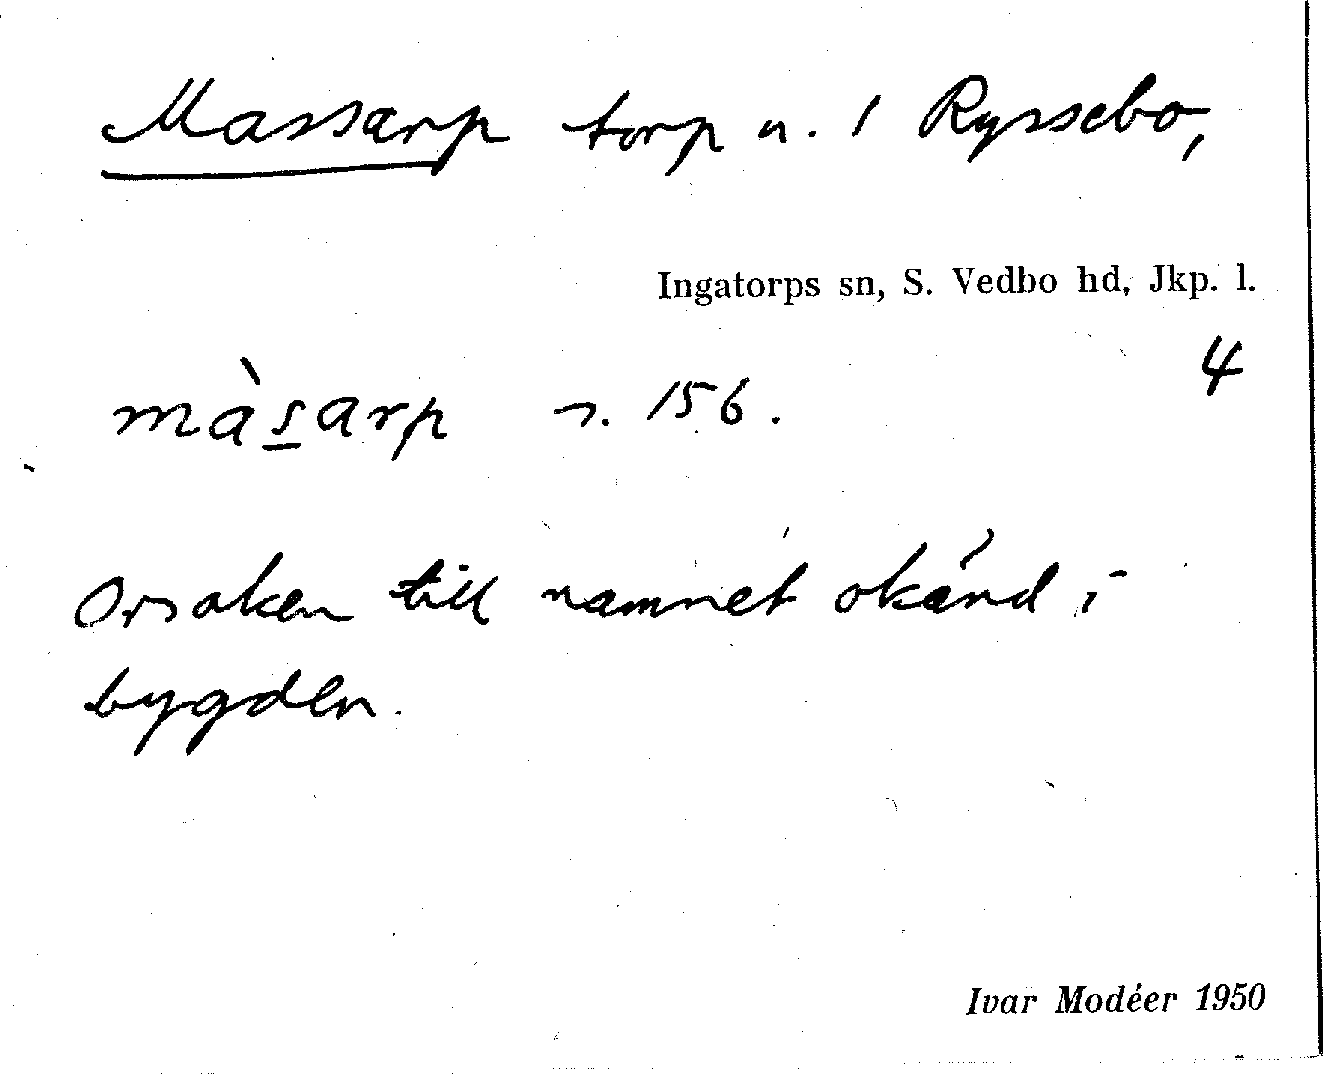 Massarp torp u. 1 Ryssebo,
Ingatorps sn, S. Vedbo hd, Jkp. l.
4
màs̲arp n. 156.
Orsaken till namnet okänd i
bygden.
Ivar Modéer 1950